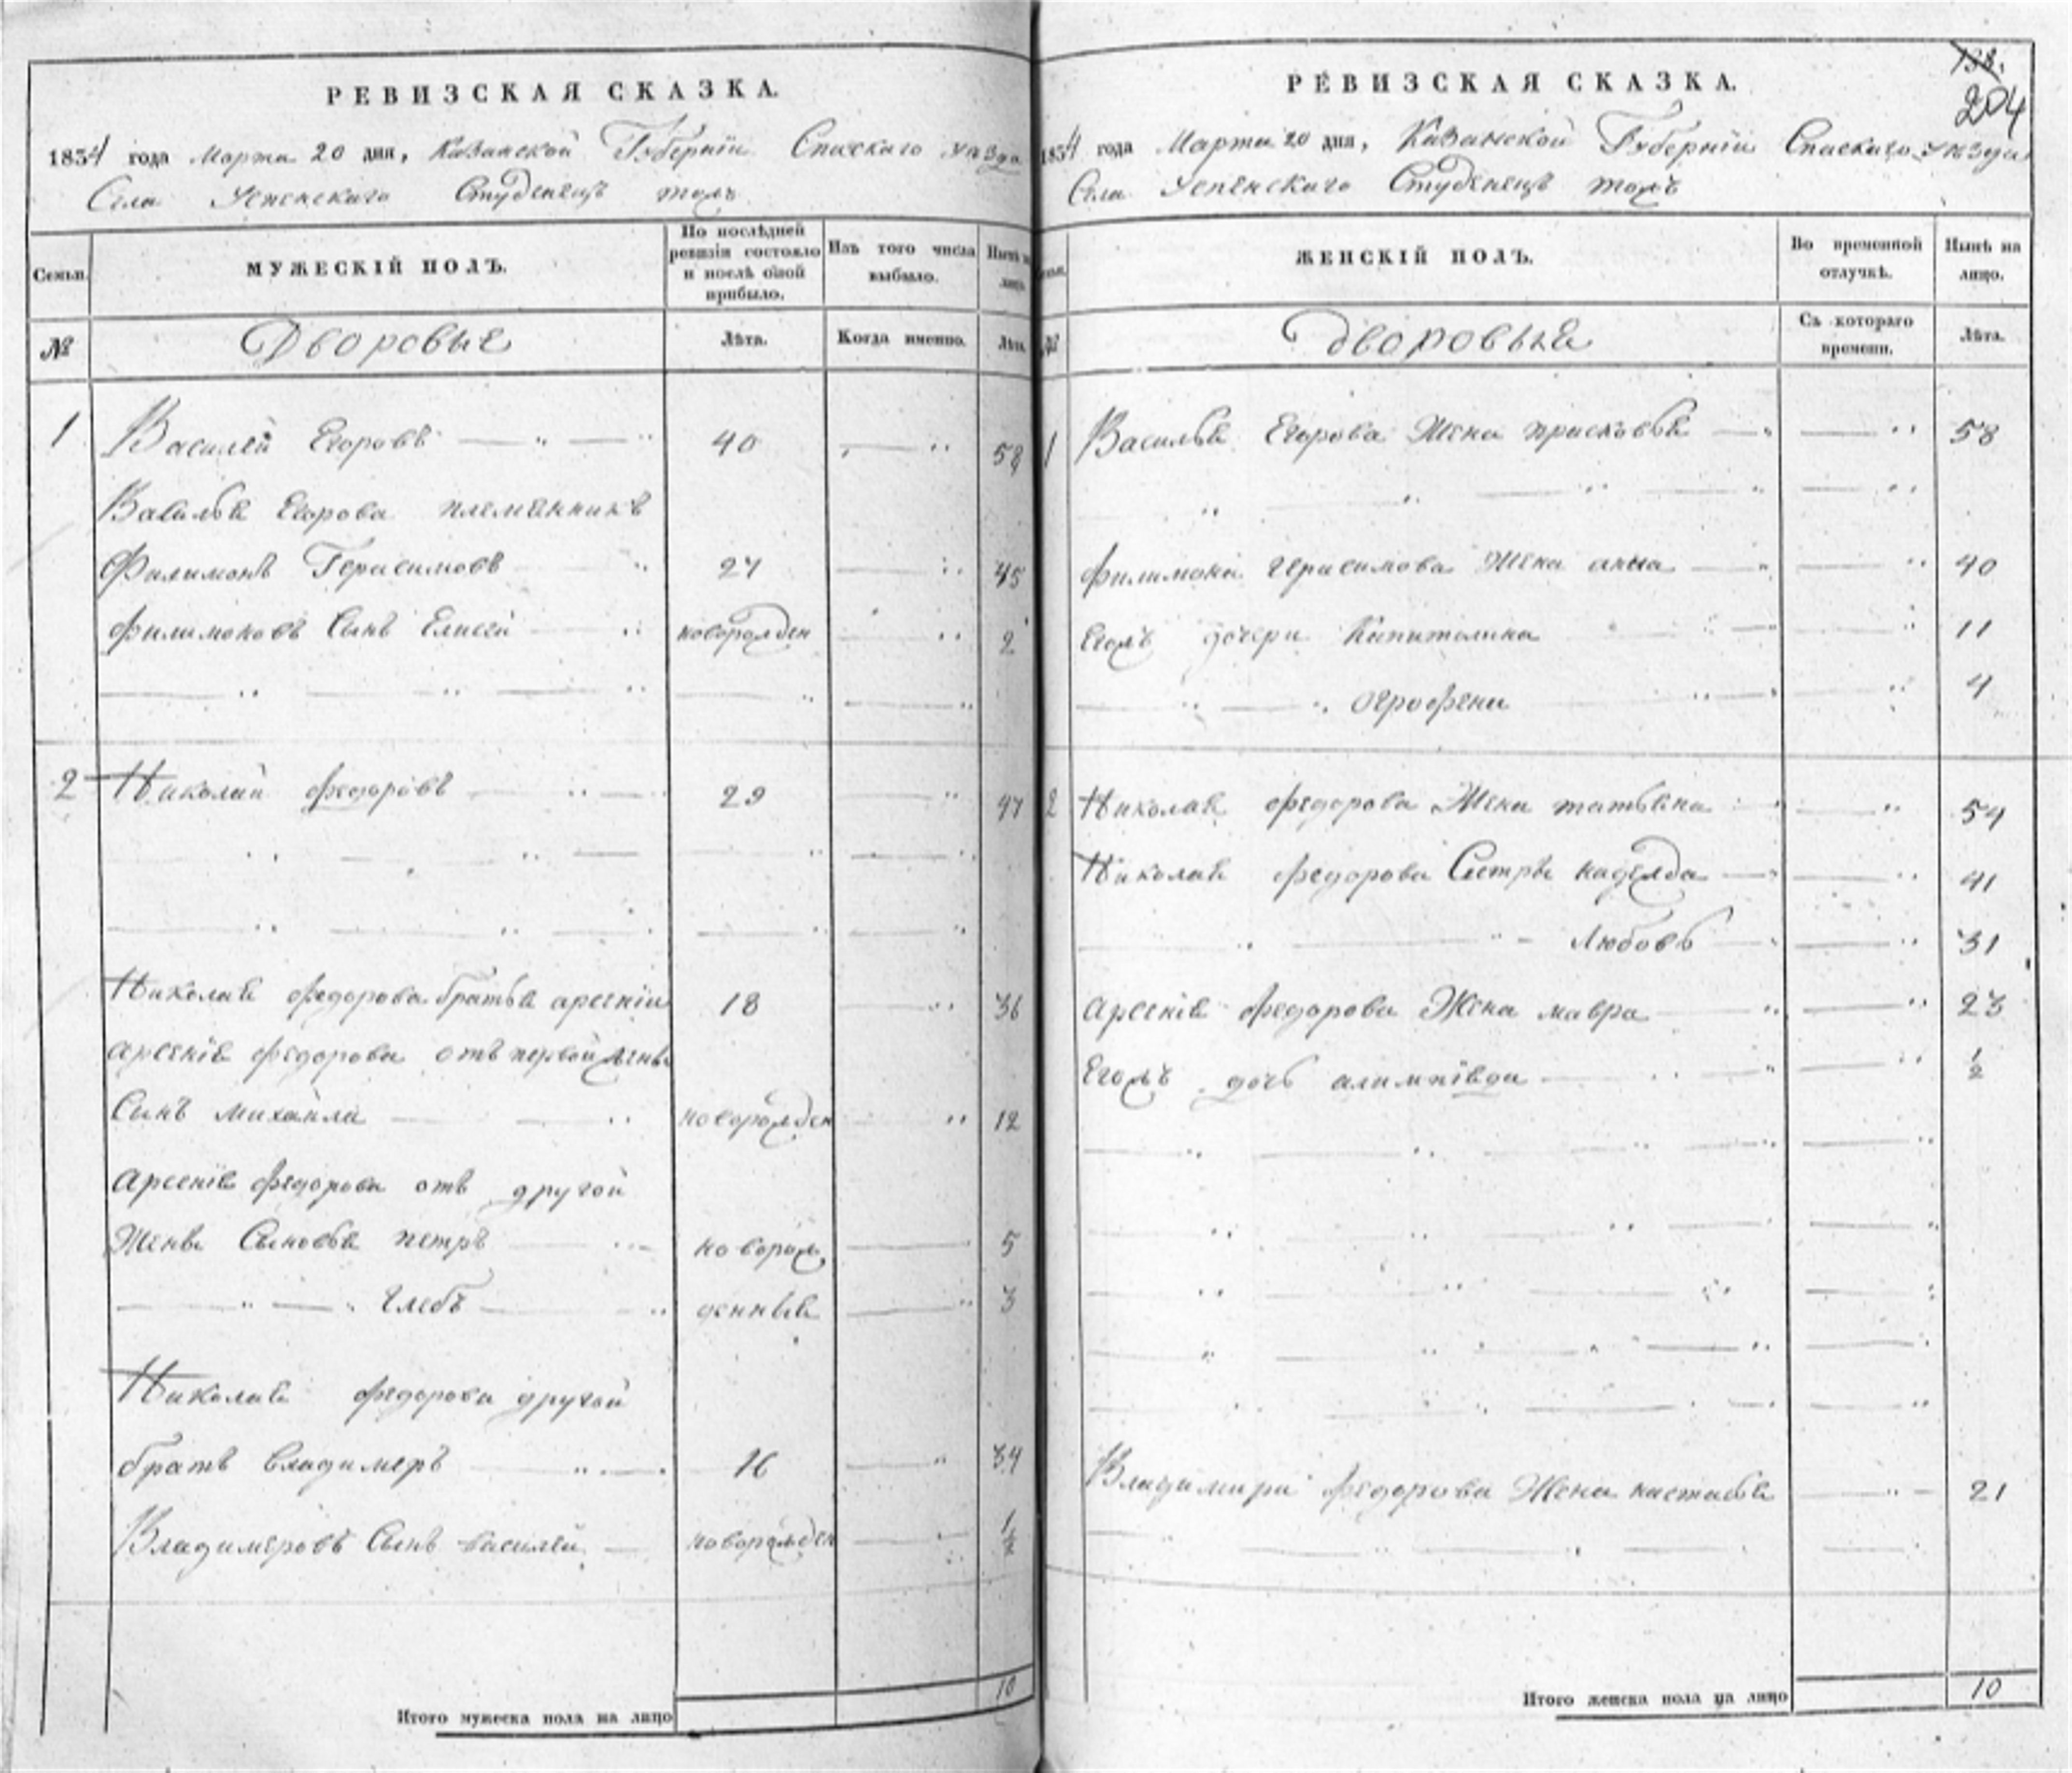 РЕВИЗСКАЯ СКАЗКА.
1834 года Марта 20 дня, Казанской Губернiи Спаскаго уезда
Села Успенскаго Студенецъ тожъ
Семьи.
МУЖЕСКIЙ ПОЛЪ.
По послѣдней ревизiи состояло и послѣ оной прибыло.
Изъ того числа выбыло.
Нынѣ на лицо.
№
Дворовые
Лѣта.
Когда именно.
Лѣта.
1 Василей Егоровъ 40 58
Васильѣ Егорова племянникъ
Филимонъ Герасимовъ 27 45
Филимоновъ Сынъ Елисей новорожден 2
2 Николай Федоровъ 29 47
Николаѣ Федорова братья арсенiй 18 36
арсенiѣ Федорова отъ первой жены
Сынъ михайла новорожден 12
арсенiѣ Федорова отъ другой
Жены Сыновья петръ новорож 5
глебъ денные 3
Николаѣ Федорова другой
братъ владимеръ 16 34
Владимеровъ Сынъ василей новорожден 1/2
Итого мужеска пола на лицо 10
138.
204
РЕВИЗСКАЯ СКАЗКА.
1834 года Марта 20 дня, Казанской Губернiи Спаскаго уезда
Села Успенскаго Студенецъ тожъ
ЖЕНСКIЙ ПОЛЪ.
Во временной отлучкѣ.
Нынѣ на лицо.
№
Дворовыя
Съ котораго времени.
Лѣта.
1 Васильѣ Егорова Жена прасковья 58
Филимона герасимова Жена анна 40
Егожъ дочери Капитолина 11
огрофена 4
2 Николаѣ Федорова Жена татьяна 54
Николаѣ Федорова Сестры надежда 41
Любовь 31
арсенiѣ Федорова Жена мавра 23
Егожъ дочь алимпiяда 1/2
Владимира Федорова Жена настасья 21
Итого женска пола на лицо 10